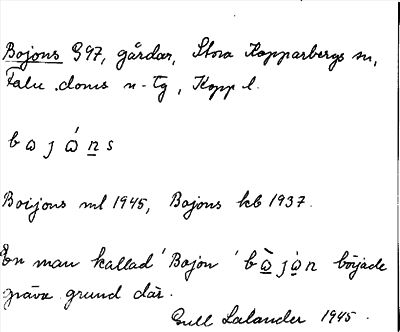 Bojons §97, gårdar, Stora Kopparbergs sn,
Falu .doms n-Tg, Kopp l.
b ɷ j ɷ́ n s
Boijons ml 1945, Bojons kb 1937.
En man kallad 'Bojon' bɷ̀jɷn började
gräva grund där.
Gull Lalander 1945.